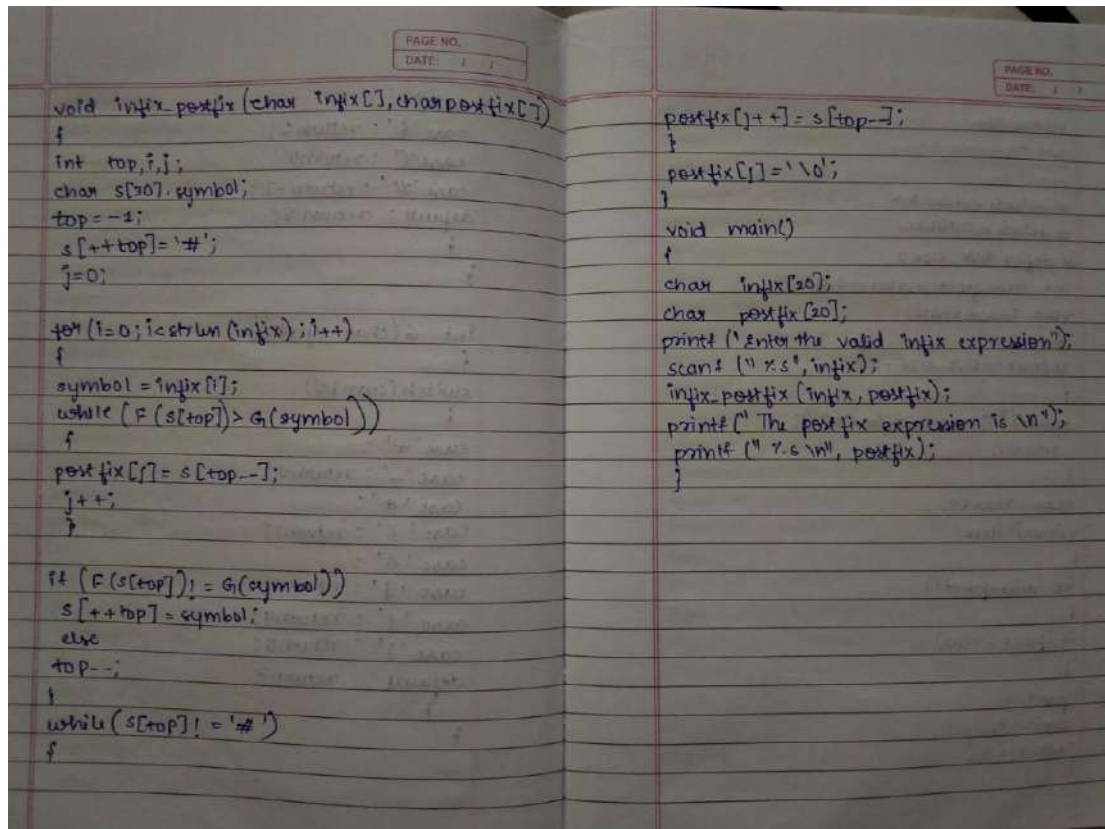 PAGE NO.
DATE: / /
void infix_postfix (char infix[], char postfix[])
{
int top, i, j;
char s[30], symbol;
top = -1;
s[++top] = '#';
j=0;
for (i=0; i<strlen (infix); i++)
{
symbol = infix [i];
while (F (s[top]) > G (symbol))
{
postfix [j] = s [top--];
j++;
}
if (F (s[top]) != G (symbol))
s[++top] = symbol;
else
top--;
}
while (s[top] != '#')
{
PAGE NO.
DATE: / /
postfix [j++] = s [top--];
}
postfix [j] = '\0';
}
void main()
{
char infix [20];
char postfix [20];
printf ("Enter the valid infix expression");
scanf ("%s", infix);
infix_postfix (infix, postfix);
printf (" The postfix expression is \n");
printf (" %s \n", postfix);
}